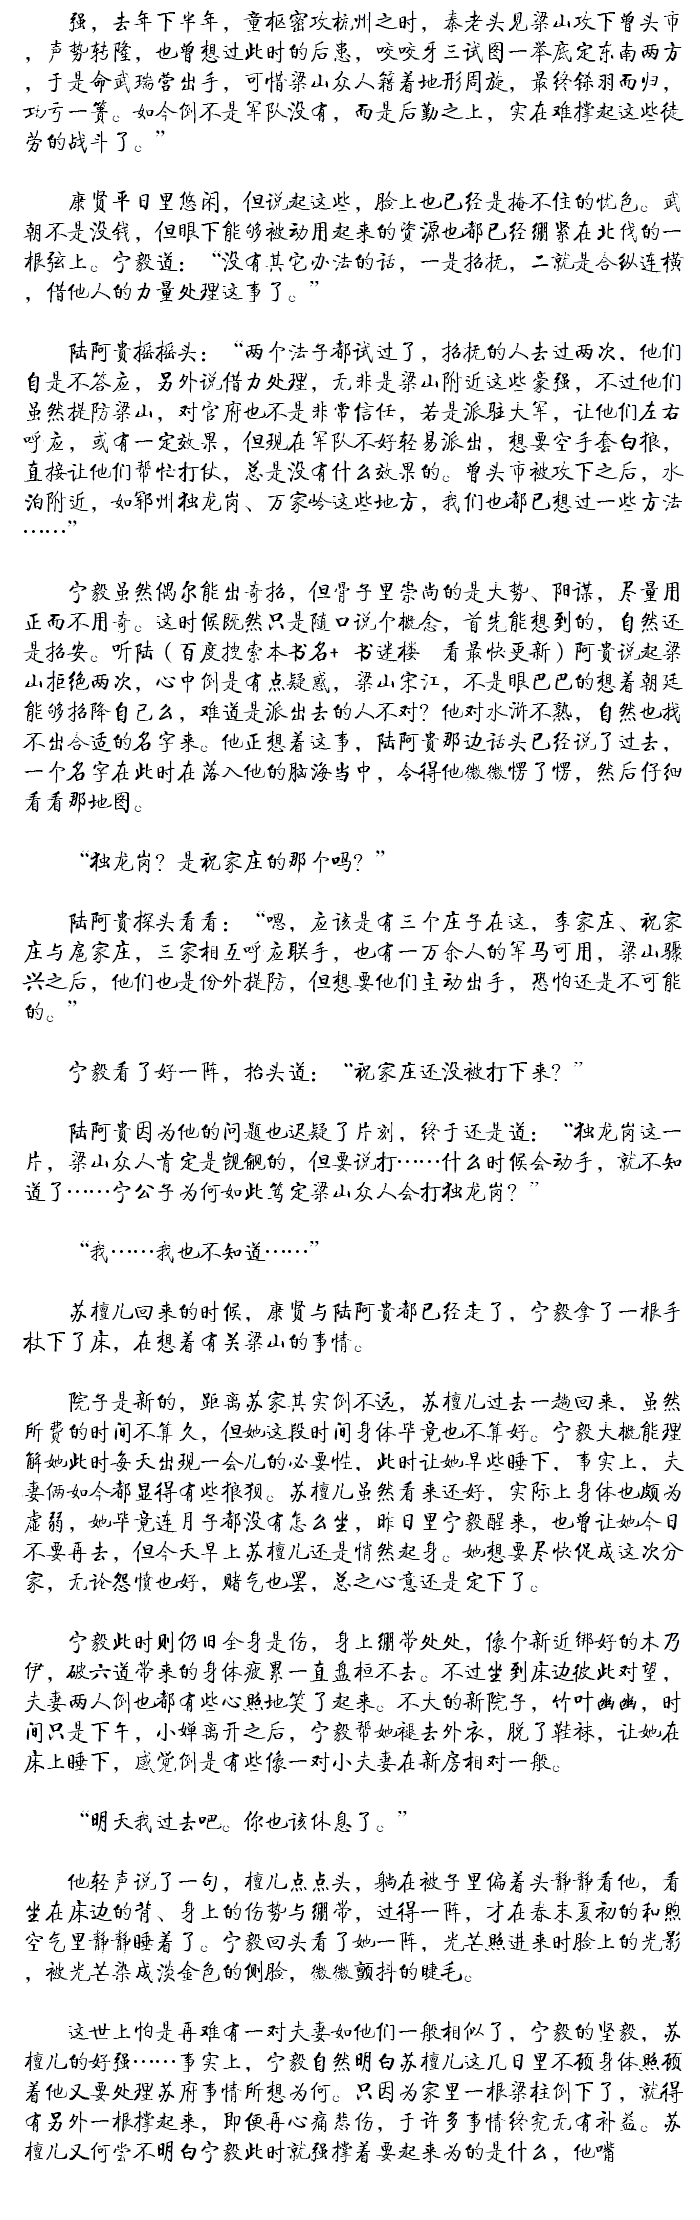 强，去年下半年，童枢密攻杭州之时，秦老头见梁山攻下曾头市
，声势转隆，也曾想过此时的后患，咬咬牙三试图一举底定东南两方
，于是命武瑞营出手，可惜梁山众人籍着地形周旋，最终铩羽而归，
功亏一篑。如今倒不是军队没有，而是后勤之上，实在难撑起这些徒
劳的战斗了。”
康贤平日里悠闲，但说起这些，脸上也已经是掩不住的忧色。武
朝不是没钱，但眼下能够被动用起来的资源也都已经绷紧在北伐的一
根弦上。宁毅道：“没有其它办法的话，一是招抚，二就是合纵连横
，借他人的力量处理这事了。”
陆阿贵摇摇头：“两个法子都试过了，招抚的人去过两次，他们
自是不答应，另外说借力处理，无非是梁山附近这些豪强，不过他们
虽然提防梁山，对官府也不是非常信任，若是派驻大军，让他们左右
呼应，或有一定效果，但现在军队不好轻易派出，想要空手套白狼，
直接让他们帮忙打仗，总是没有什么效果的。曾头市被攻下之后，水
泊附近，如郓州独龙岗、万家岭这些地方，我们也都已想过一些方法
……”
宁毅虽然偶尔能出奇招，但骨子里崇尚的是大势、阳谋，尽量用
正而不用奇。这时候既然只是随口说个概念，首先能想到的，自然还
是招安。听陆（百度搜索本书名+ 书迷楼 看最快更新）阿贵说起梁
山拒绝两次，心中倒是有点疑惑，梁山宋江，不是眼巴巴的想着朝廷
能够招降自己么，难道是派出去的人不对？他对水浒不熟，自然也找
不出合适的名字来。他正想着这事，陆阿贵那边话头已经说了过去，
一个名字在此时在落入他的脑海当中，令得他微微愣了愣，然后仔细
看看那地图。
“独龙岗？是祝家庄的那个吗？”
陆阿贵探头看看：“嗯，应该是有三个庄子在这，李家庄、祝家
庄与扈家庄，三家相互呼应联手，也有一万余人的军马可用，梁山骤
兴之后，他们也是份外提防，但想要他们主动出手，恐怕还是不可能
的。”
宁毅看了好一阵，抬头道：“祝家庄还没被打下来？”
陆阿贵因为他的问题也迟疑了片刻，终于还是道：“独龙岗这一
片，梁山众人肯定是觊觎的，但要说打……什么时候会动手，就不知
道了……宁公子为何如此笃定梁山众人会打独龙岗？”
“我……我也不知道……”
苏檀儿回来的时候，康贤与陆阿贵都已经走了，宁毅拿了一根手
杖下了床，在想着有关梁山的事情。
院子是新的，距离苏家其实倒不远，苏檀儿过去一趟回来，虽然
所费的时间不算久，但她这段时间身体毕竟也不算好。宁毅大概能理
解她此时每天出现一会儿的必要性，此时让她早些睡下，事实上，夫
妻俩如今都显得有些狼狈。苏檀儿虽然看来还好，实际上身体也颇为
虚弱，她毕竟连月子都没有怎么坐，昨日里宁毅醒来，也曾让她今日
不要再去，但今天早上苏檀儿还是悄然起身。她想要尽快促成这次分
家，无论怨愤也好，赌气也罢，总之心意还是定下了。
宁毅此时则仍旧全身是伤，身上绷带处处，像个新近绑好的木乃
伊，破六道带来的身体疲累一直盘桓不去。不过坐到床边彼此对望，
夫妻两人倒也都有些心照地笑了起来。不大的新院子，竹叶幽幽，时
间只是下午，小婵离开之后，宁毅帮她褪去外衣，脱了鞋袜，让她在
床上睡下，感觉倒是有些像一对小夫妻在新房相对一般。
“明天我过去吧。你也该休息了。”
他轻声说了一句，檀儿点点头，躺在被子里偏着头静静看他，看
坐在床边的背、身上的伤势与绷带，过得一阵，才在春末夏初的和煦
空气里静静睡着了。宁毅回头看了她一阵，光芒照进来时脸上的光影
，被光芒染成淡金色的侧脸，微微颤抖的睫毛。
这世上怕是再难有一对夫妻如他们一般相似了，宁毅的坚毅，苏
檀儿的好强……事实上，宁毅自然明白苏檀儿这几日里不顾身体照顾
着他又要处理苏府事情所想为何。只因为家里一根梁柱倒下了，就得
有另外一根撑起来，即便再心痛悲伤，于许多事情终究无有补益。苏
檀儿又何尝不明白宁毅此时就强撑着要起来为的是什么，他嘴